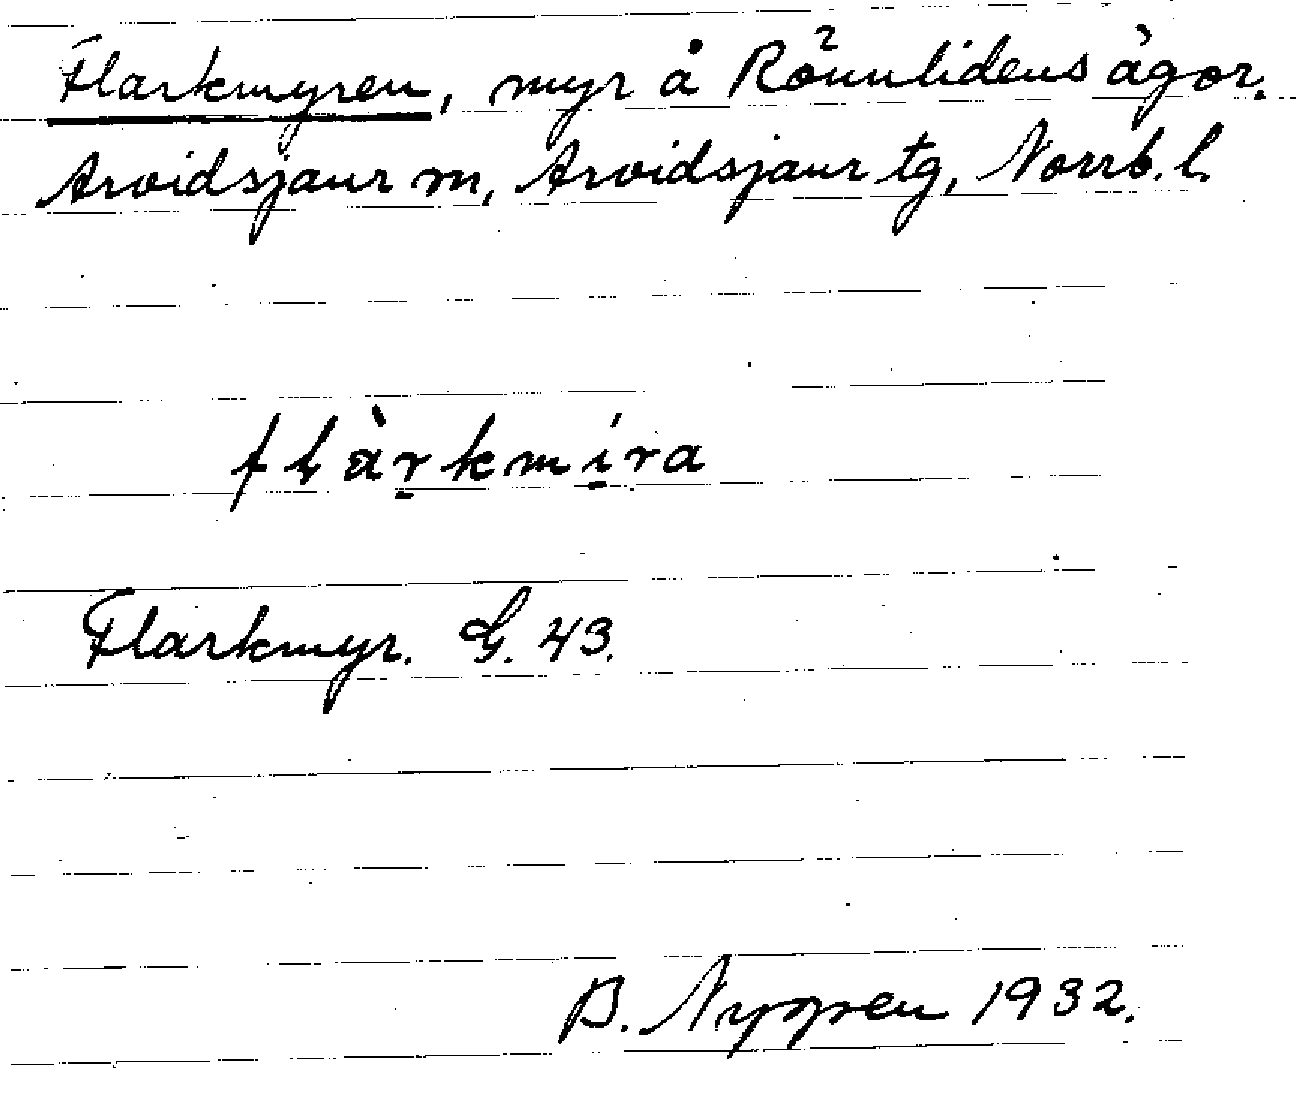 Flarkmyren, myr å Rönnlidens ägor.
Arvidsjaur m, Arvidsjaur tg, Norrb. l.
flàrkmíra
Flarkmyr. G. 43.
B. Nygren 1932.